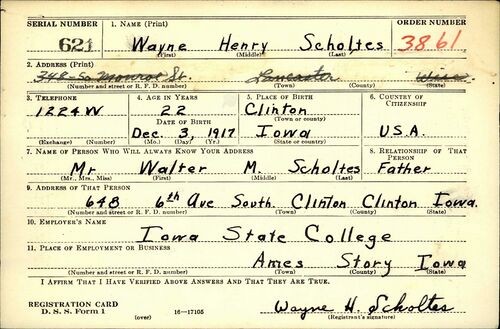 SERIAL NUMBER 1. NAME (Print) ORDER NUMBER
621 Wayne Henry Scholtes 3861
(First) (Middle) (Last)
2. ADDRESS (Print)
348 So Monroe St. Lancaster Wisc
(Number and street or R. F. D. number) (Town) (County) (State)
3. TELEPHONE 4. AGE IN YEARS 5. PLACE OF BIRTH 6. COUNTRY OF CITIZENSHIP
1224W 22 Clinton
DATE OF BIRTH (Town or county)
Dec. 3, 1917 Iowa U.S.A.
(Exchange) (Number) (Mo.) (Day) (Yr.) (State or country)
7. NAME OF PERSON WHO WILL ALWAYS KNOW YOUR ADDRESS 8. RELATIONSHIP OF THAT PERSON
Mr Walter M. Scholtes Father
(Mr., Mrs., Miss) (First) (Middle) (Last)
9. ADDRESS OF THAT PERSON
648 6th Ave South. Clinton Clinton Iowa.
(Number and street or R. F. D. number) (Town) (County) (State)
10. EMPLOYER'S NAME
Iowa State College
11. PLACE OF EMPLOYMENT OR BUSINESS
Ames Story Iowa
(Number and street or R. F. D. number) (Town) (County) (State)
I AFFIRM THAT I HAVE VERIFIED ABOVE ANSWERS AND THAT THEY ARE TRUE.
REGISTRATION CARD
D. S. S. Form 1 (over) 16—17105 Wayne H. Scholtes
(Registrant's signature)